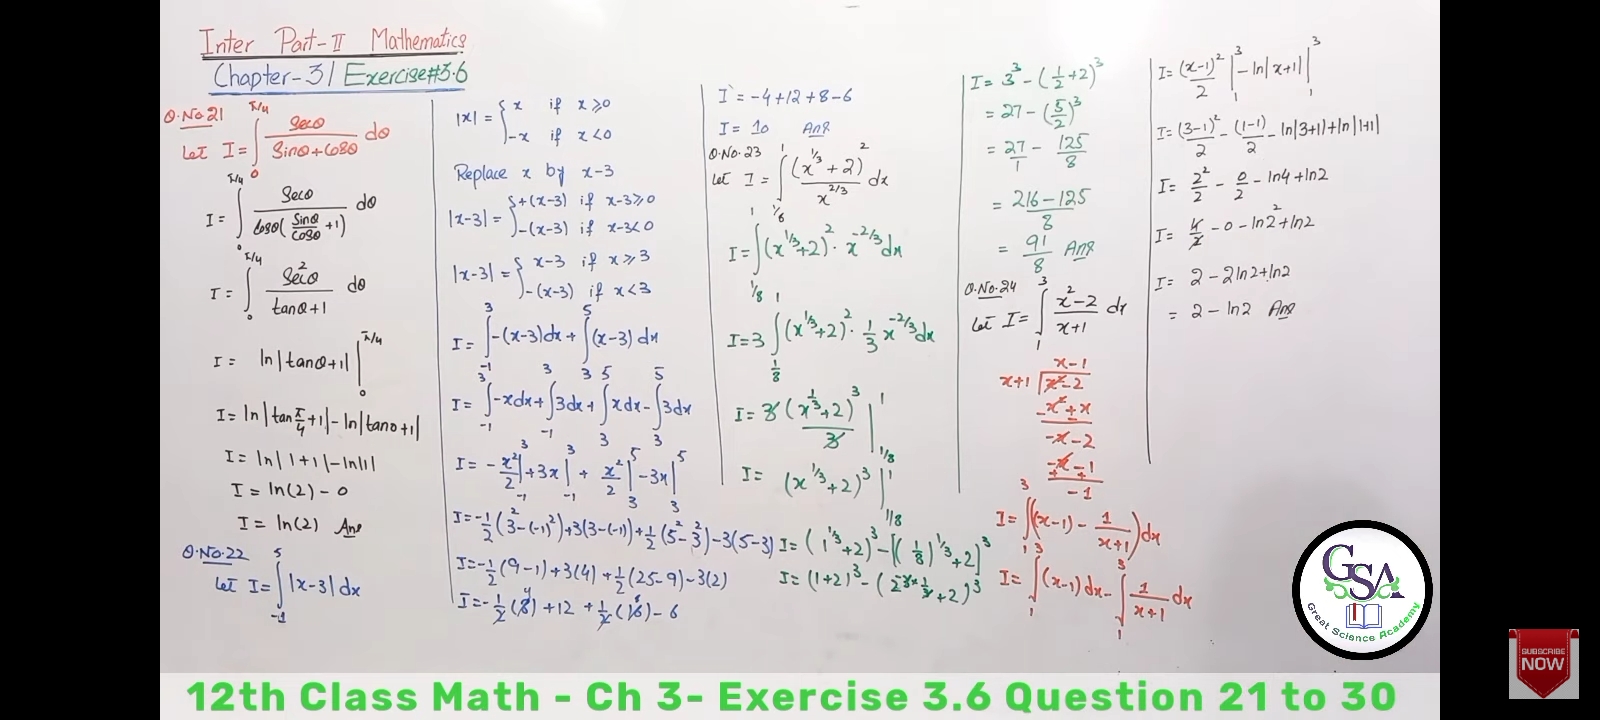 Inter Part-II Mathematics
Chapter-3 / Exercise#3.6
Q.No.21
Let I = ∫₀^{π/4} Secθ/(Sinθ+Cosθ) dθ
I = ∫₀^{π/4} Secθ/(Cosθ(Sinθ/Cosθ +1)) dθ
I = ∫₀^{π/4} Sec²θ/(tanθ+1) dθ
I = ln|tanθ+1| |₀^{π/4}
I = ln|tan π/4 +1| - ln|tan0+1|
I = ln|1+1| - ln|1|
I = ln(2) - 0
I = ln(2) Ans
Q.No.22
Let I = ∫₋₁^5 |x-3| dx
|x| = { x if x ≥ 0
-x if x < 0
Replace x by x-3
|x-3| = { +(x-3) if x-3 ≥ 0
-(x-3) if x-3 < 0
|x-3| = { x-3 if x ≥ 3
-(x-3) if x < 3
I = ∫₋₁^3 -(x-3)dx + ∫₃^5 (x-3) dx
I = ∫₋₁^3 -x dx + ∫₋₁^3 3dx + ∫₃^5 x dx - ∫₃^5 3dx
I = -x²/2 |₋₁^3 + 3x |₋₁^3 + x²/2 |₃^5 - 3x |₃^5
I = -1/2 (3² - (-1)²) + 3(3-(-1)) + 1/2 (5² - 3²) - 3(5-3)
I = -1/2 (9-1) + 3(4) + 1/2 (25-9) - 3(2)
I = -1/2 (8) + 12 + 1/2 (16) - 6
I = -4+12+8-6
I = 10 Ans
Q.No.23
Let I = ∫_{1/8}^1 (x^{1/3}+2)²/x^{2/3} dx
I = ∫_{1/8}^1 (x^{1/3}+2)² · x^{-2/3} dx
I = 3 ∫_{1/8}^1 (x^{1/3}+2)² · 1/3 x^{-2/3} dx
I = 3 (x^{1/3}+2)³/3 |_{1/8}^1
I = (x^{1/3}+2)³ |_{1/8}^1
I = (1^{1/3}+2)³ - [(1/8)^{1/3}+2]³
I = (1+2)³ - (2^{-3×1/3}+2)³
I = 3³ - (1/2+2)³
= 27 - (5/2)³
= 27/1 - 125/8
= 216-125/8
= 91/8 Ans
Q.No.24
Let I = ∫₁^3 x²-2/x+1 dx
x-1
x+1 √x²-2
-x²+x
-x-2
-x-1
+ +
-1
I = ∫₁^3 ((x-1) - 1/(x+1)) dx
I = ∫₁^3 (x-1) dx - ∫₁^3 1/(x+1) dx
I = (x-1)²/2 |₁^3 - ln|x+1| |₁^3
I = (3-1)²/2 - (1-1)/2 - ln|3+1| + ln|1+1|
I = 2²/2 - 0/2 - ln4 + ln2
I = 4/2 - 0 - ln2² + ln2
I = 2 - 2ln2 + ln2
= 2 - ln2 Ans
GSA
Great Science Academy
SUBSCRIBE
NOW
12th Class Math - Ch 3- Exercise 3.6 Question 21 to 30